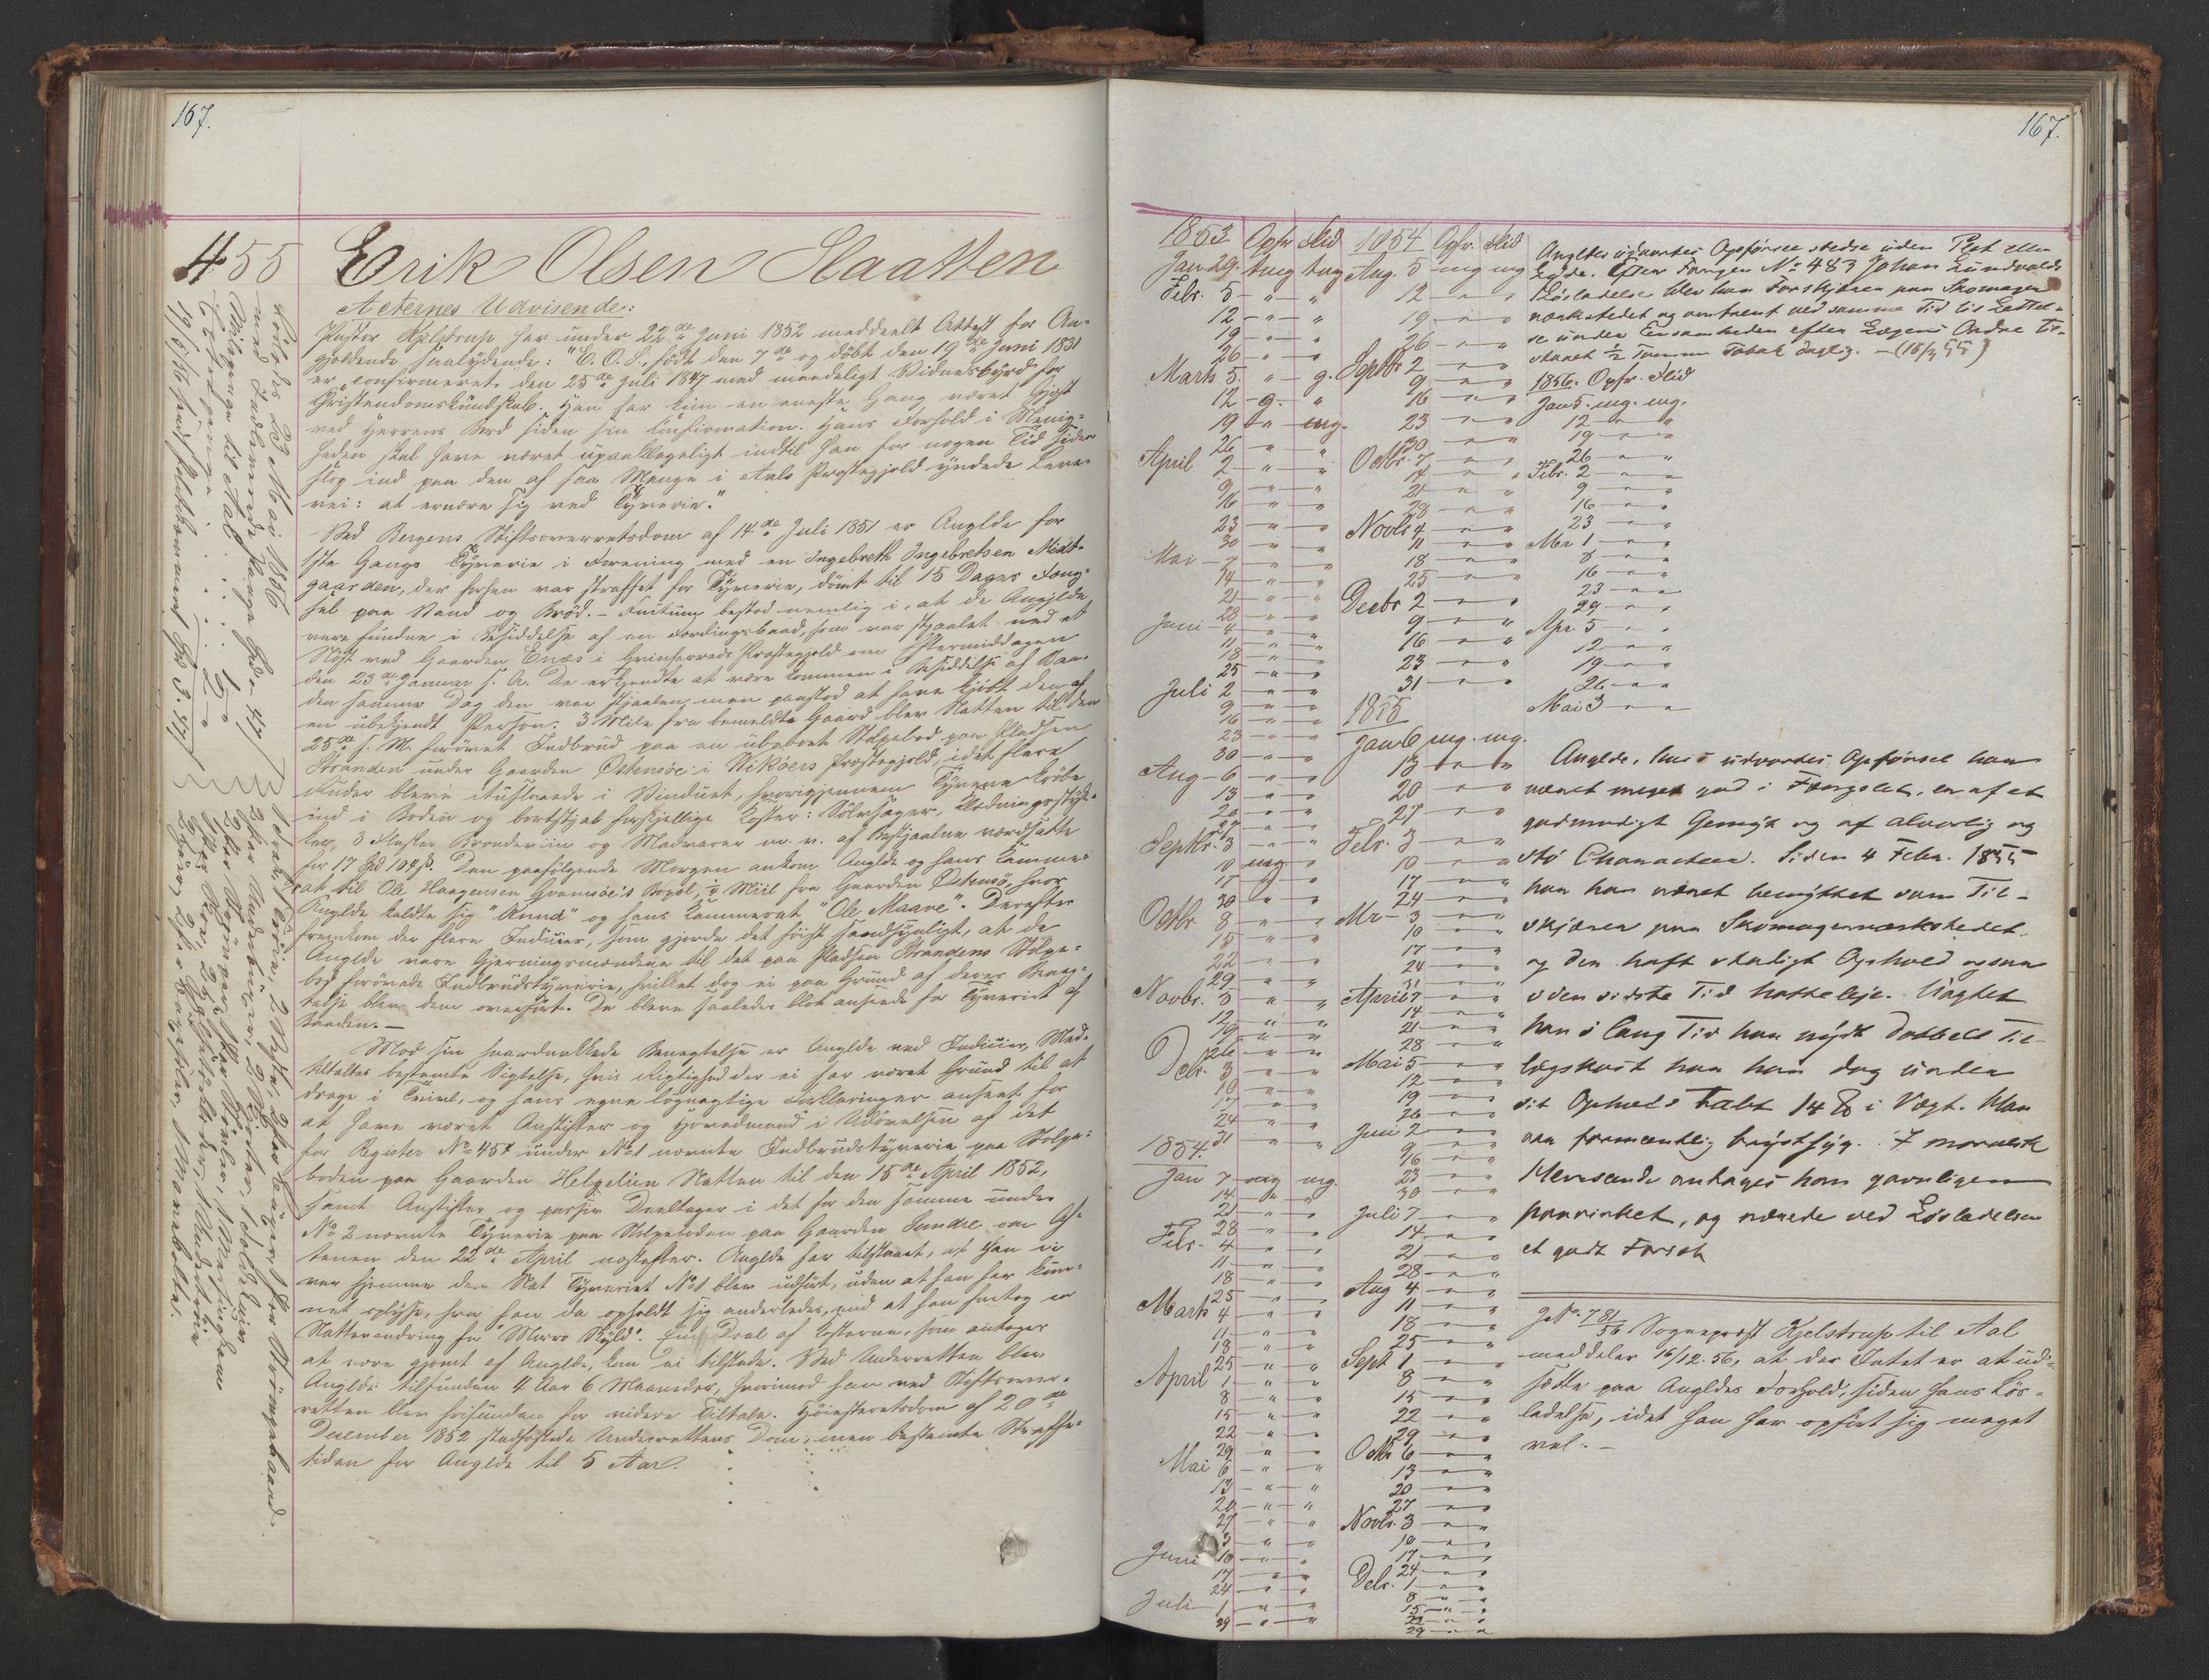 167.
455 Erik Olsen Slaatten
Acternes Udvisende:
Pastor Kjelstrup har under 22de Juni 1852 meddeelt Attest for An-
gjeldende saalydende: "E. O. S., født den 7de og døbt den 19de Juni 1831
er confirmeret den 25de Juli 1847 med maadeligt Vidnesbyrd for
Christendomskundskab. Han har kun en eneste Gang været Gjest
ved Herrens Bord siden sin Confirmation. Hans Forhold i Menig-
heden skal have været upaaklageligt indtil han for nogen Tid siden
slog ind paa den af saa Mange i Aals Præstegjeld yndede Leve-
vei: at ernære sig ved Tyverie."
Ved Bergens Stiftsoverretsdom af 14de Juli 1851 er Anglde for
1ste Gangs Tyverie i Forening med en Ingebreth Ingebretsen Midt-
gaarden, der forhen var straffet for Tyverie, dømt til 15 Dages Fæng-
sel paa Vand og Brød. - Factum bestod nemlig i, at de Anglde
vare fundne i Besiddelse af en Færdingsbaad, som var stjaalet ved et
Nøst ved Gaarden Enæs i Qvinherreds Præstegjeld om Eftermiddagen
den 23de Januar s. A. De erkjendte at være kommen i Besiddelse af Baa-
den samme Dag den var stjaalen, men paastod at have kjøbt den af
en ubekjendt Person. 3 Mile fra bemeldte Gaard blev Natten til den
25de s. M. forøvet Indbrud paa en ubeboet Stolpebod paa Pladsen
Stranden under Gaarden Østensøe i Vikøers Præstegjeld, idet flere
Ruder bleve udslaaede i Vinduet, hvorigjennem Tyvene krøbe
ind i Boden og bortstjal forskjellige Koster: Sølvsager, Klædningsstyk-
ker, 3 Flasker Brændeviin og Madvarer m. v. af Bestjaalne værdsatte
for 17 Spd 104 ß. Den paafølgende Morgen ankom Anglde og hans Kamme-
rat til Ole Haagensen Gravnsøe's Bopæl, ¼ Miil fra Gaarden Østensø, hvor
Anglde kaldte sig "Anund" og hans Kammerat "Ole Maave". Derefter
fremkom der flere Indicier, som gjorde det høist sandsynligt, at de
Anglde vare Gjerningsmændene til det paa Pladsen Strandens Stolpe-
bod forøvede Indbrudstyverie, hvilket dog ei paa Grund af deres Benæg-
telse blev dem overført. De bleve saaledes blot anseede for Tyveriet af
Baaden. -
Mod sin haardnakkede Benægtelse er Anglde ved Indicier, Med-
tiltaltes bestemte Sigtelse, hvis Rigtighed der ei har været Grund til at
drage i Tvivl, og hans egne løgnagtige Forklaringer anseet for
at have været Anstifter og Hovedmand i Udøvelsen af det
for Register No 454 under No 1 nævnte Indbrudstyverie paa Stolpe-
boden paa Gaarden Helgelien Natten til den 15de April 1852,
samt Anstifter og passiv Deeltager i det for den samme under
No 2 nævnte Tyverie paa Stolpeboden paa Gaarden Sundre om Af-
tenen den 22de April næstefter. Anglde har tilstaaet, at han ei
var hjemme den Nat Tyveriet No 1 blev udført, uden at han har kun-
net oplyse, hvor han da opholdt sig anderledes, end at han foretog en
Nattevandring for "Morro Skyld". En Deel af Kosterne, som antages
at være gjemt af Anglde, kom ei tilstede. Ved Underretten blev
Anglde tilfunden 4 Aar 6 Maaneder, hvorimod han ved Stiftsover-
retten blev frifunden for videre Tiltale. Høiesteretsdom af 20de
December 1852 stadfæstede Underrettens Dom, men bestemte Straffe-
tiden for Anglde til 5 Aar.
Løslades 23 Mai 1856
167.
1853 Opfr Flid 1854 Opfr. Flid
Jan 29. tmg tmg Aug. 5 mg mg
Febr. 5
12
19
26
Marts 5 g.
12 g.
19 mg.
26
April 2
9
16
23
30
Mai 7
14
21
28
Juni 4
11
18
25
Juli 2
9
16
23
30
Aug 6
13
20
27
Septbr. 3
10 mg
17
30
Octbr 8
15
22
29
Novbr. 5
12
19
26
Debr. 3
10
17
24
31
1854.
Jan 7 mg mg.
14
21
28
Febr. 4
11
18
25
Marts 4
11
18
25
April 1
8
15
22
29
Mai 6
13
20
27
Juni 3
10
17
24
Juli 1
29
12
19
26
Septbr 2
9
16
23
30
Octbr. 7
14
21
28
Novbr 4
11
18
25
Decbr 2
9
16
23
31
1855
Jan 6 mg. mg.
13
20
27
Febr. 3
10
17
24
Mr 3
10
17
24
31
April 7
14
21
28
Mai 5
12
19
26
Juni 2
9
16
23
30
Juli 7
14
21
28
Aug 4
11
18
25
Sept 1
8
15
22
29
Octbr 6
13
20
27
Novbr. 3
10
17
24
Debr. 1
8
15
22
29
Angldes udvortes Opførsel stedse uden Plet eller
Lyde. Efter Fangen No 483 Johan Lundvalds
Løsladelse blev han Forskjærer paa Skomager
værkstedet og omtrent ved samme Tid til Lettel-
se under Eensomheden efter Lægens Ordre til-
staaet ½ Tomme Tobak daglig. - (15/3 55)
1856. Opfr. Flid
Jan 5. mg. mg.
12
19
26
Febr. 2
9
16
23
Mr 1
8
16
23
29
Apr. 5
12
19
26
Mai 3
Anglde, hvis udvortes Opførsel har
været meget god i Fængslet, er af et
godmodigt Gemyt og af alvorlig og
stø Charakteer. Siden 4 Febr. 1855
har han været benyttet som Til-
skjærer paa Skomagerværkstedet
og der haft stadigt Ophold ogsaa
i den sidste Tid Natteleje. Uagtet
han i lang Tid har nydt dobbelt Til-
lægskost har han dog under
sit Ophold tabt 14 ℔ i Vægt. Klar
nok formentlig brystsyg. I moralsk
Henseende antages han gavnligen
paavirket, og nærede ved Løsladelsen
et godt Forsæt
J No 781/56 Sognepræst Kjelstrup til Aal
meddeler 16/12.56, at der Intet er at ud-
sætte paa Angldes Forhold, siden hans Løs-
ladelse, idet han har opført sig meget
vel. -